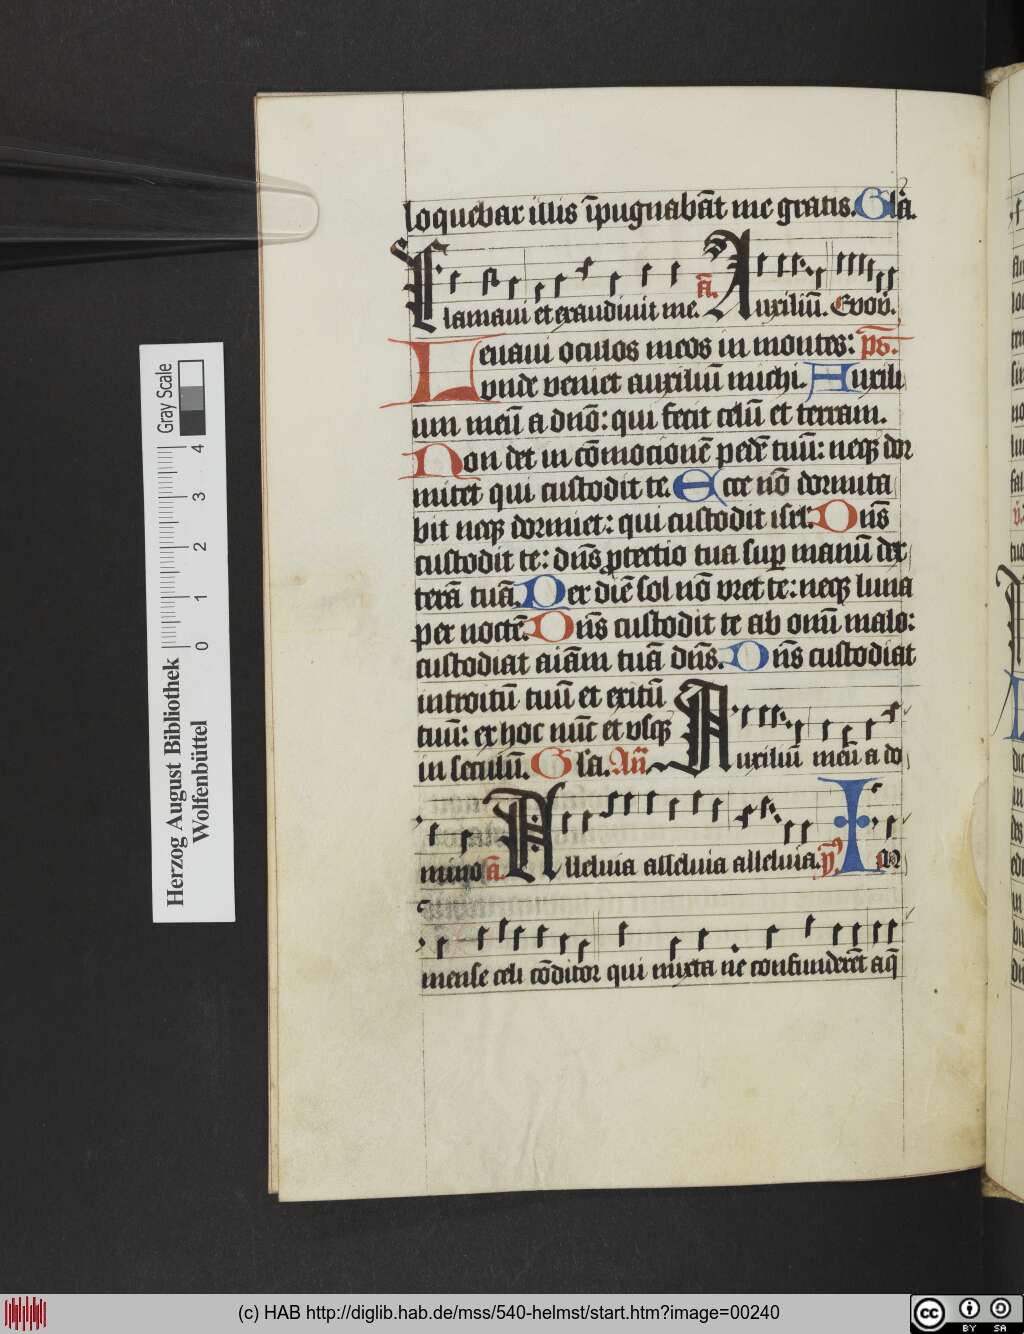 loquebar illis īpugnabāt me gratis. Glā.
Clamaui et exaudiuit me. ā. Auxiliū. Euou.
Leuaui oculos meos in montes: ps.
vnde veniet auxiliū michi. Auxili
um meū a dnō: qui fecit celū et terram.
Non det in cōmocionē pedē tuū: neqꝫ dor
mitet qui custodit te. Ecce nō dormita
bit neqꝫ dormiet: qui custodit isrl'. Dn̄s
custodit te: dn̄s ꝓtectio tua suꝑ manū dex
terā tuā. Per diē sol nō vret te: neqꝫ luna
per noctē. Dn̄s custodit te ab omī malo:
custodiat aīam tuā dn̄s. Dn̄s custodiat
introitū tuū et exitū
tuū: ex hoc nūc et vsqꝫ
in seculū. Glā. Añ. Auxiliū meū a do
mino ā. Alleluia alleluia alleluia. ỹ. Im
mense celi cōditor qui mixta ne confunderēt aq̄
Gray Scale
0 1 2 3 4
Herzog August Bibliothek
Wolfenbüttel
(c) HAB http://diglib.hab.de/mss/540-helmst/start.htm?image=00240
cc BY SA